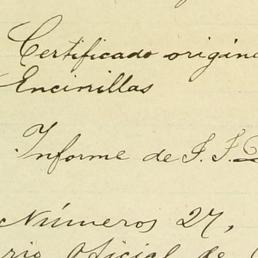 Certificado origina
Encinillas
Informe de J. J.
Números 27,
rio Oficial de